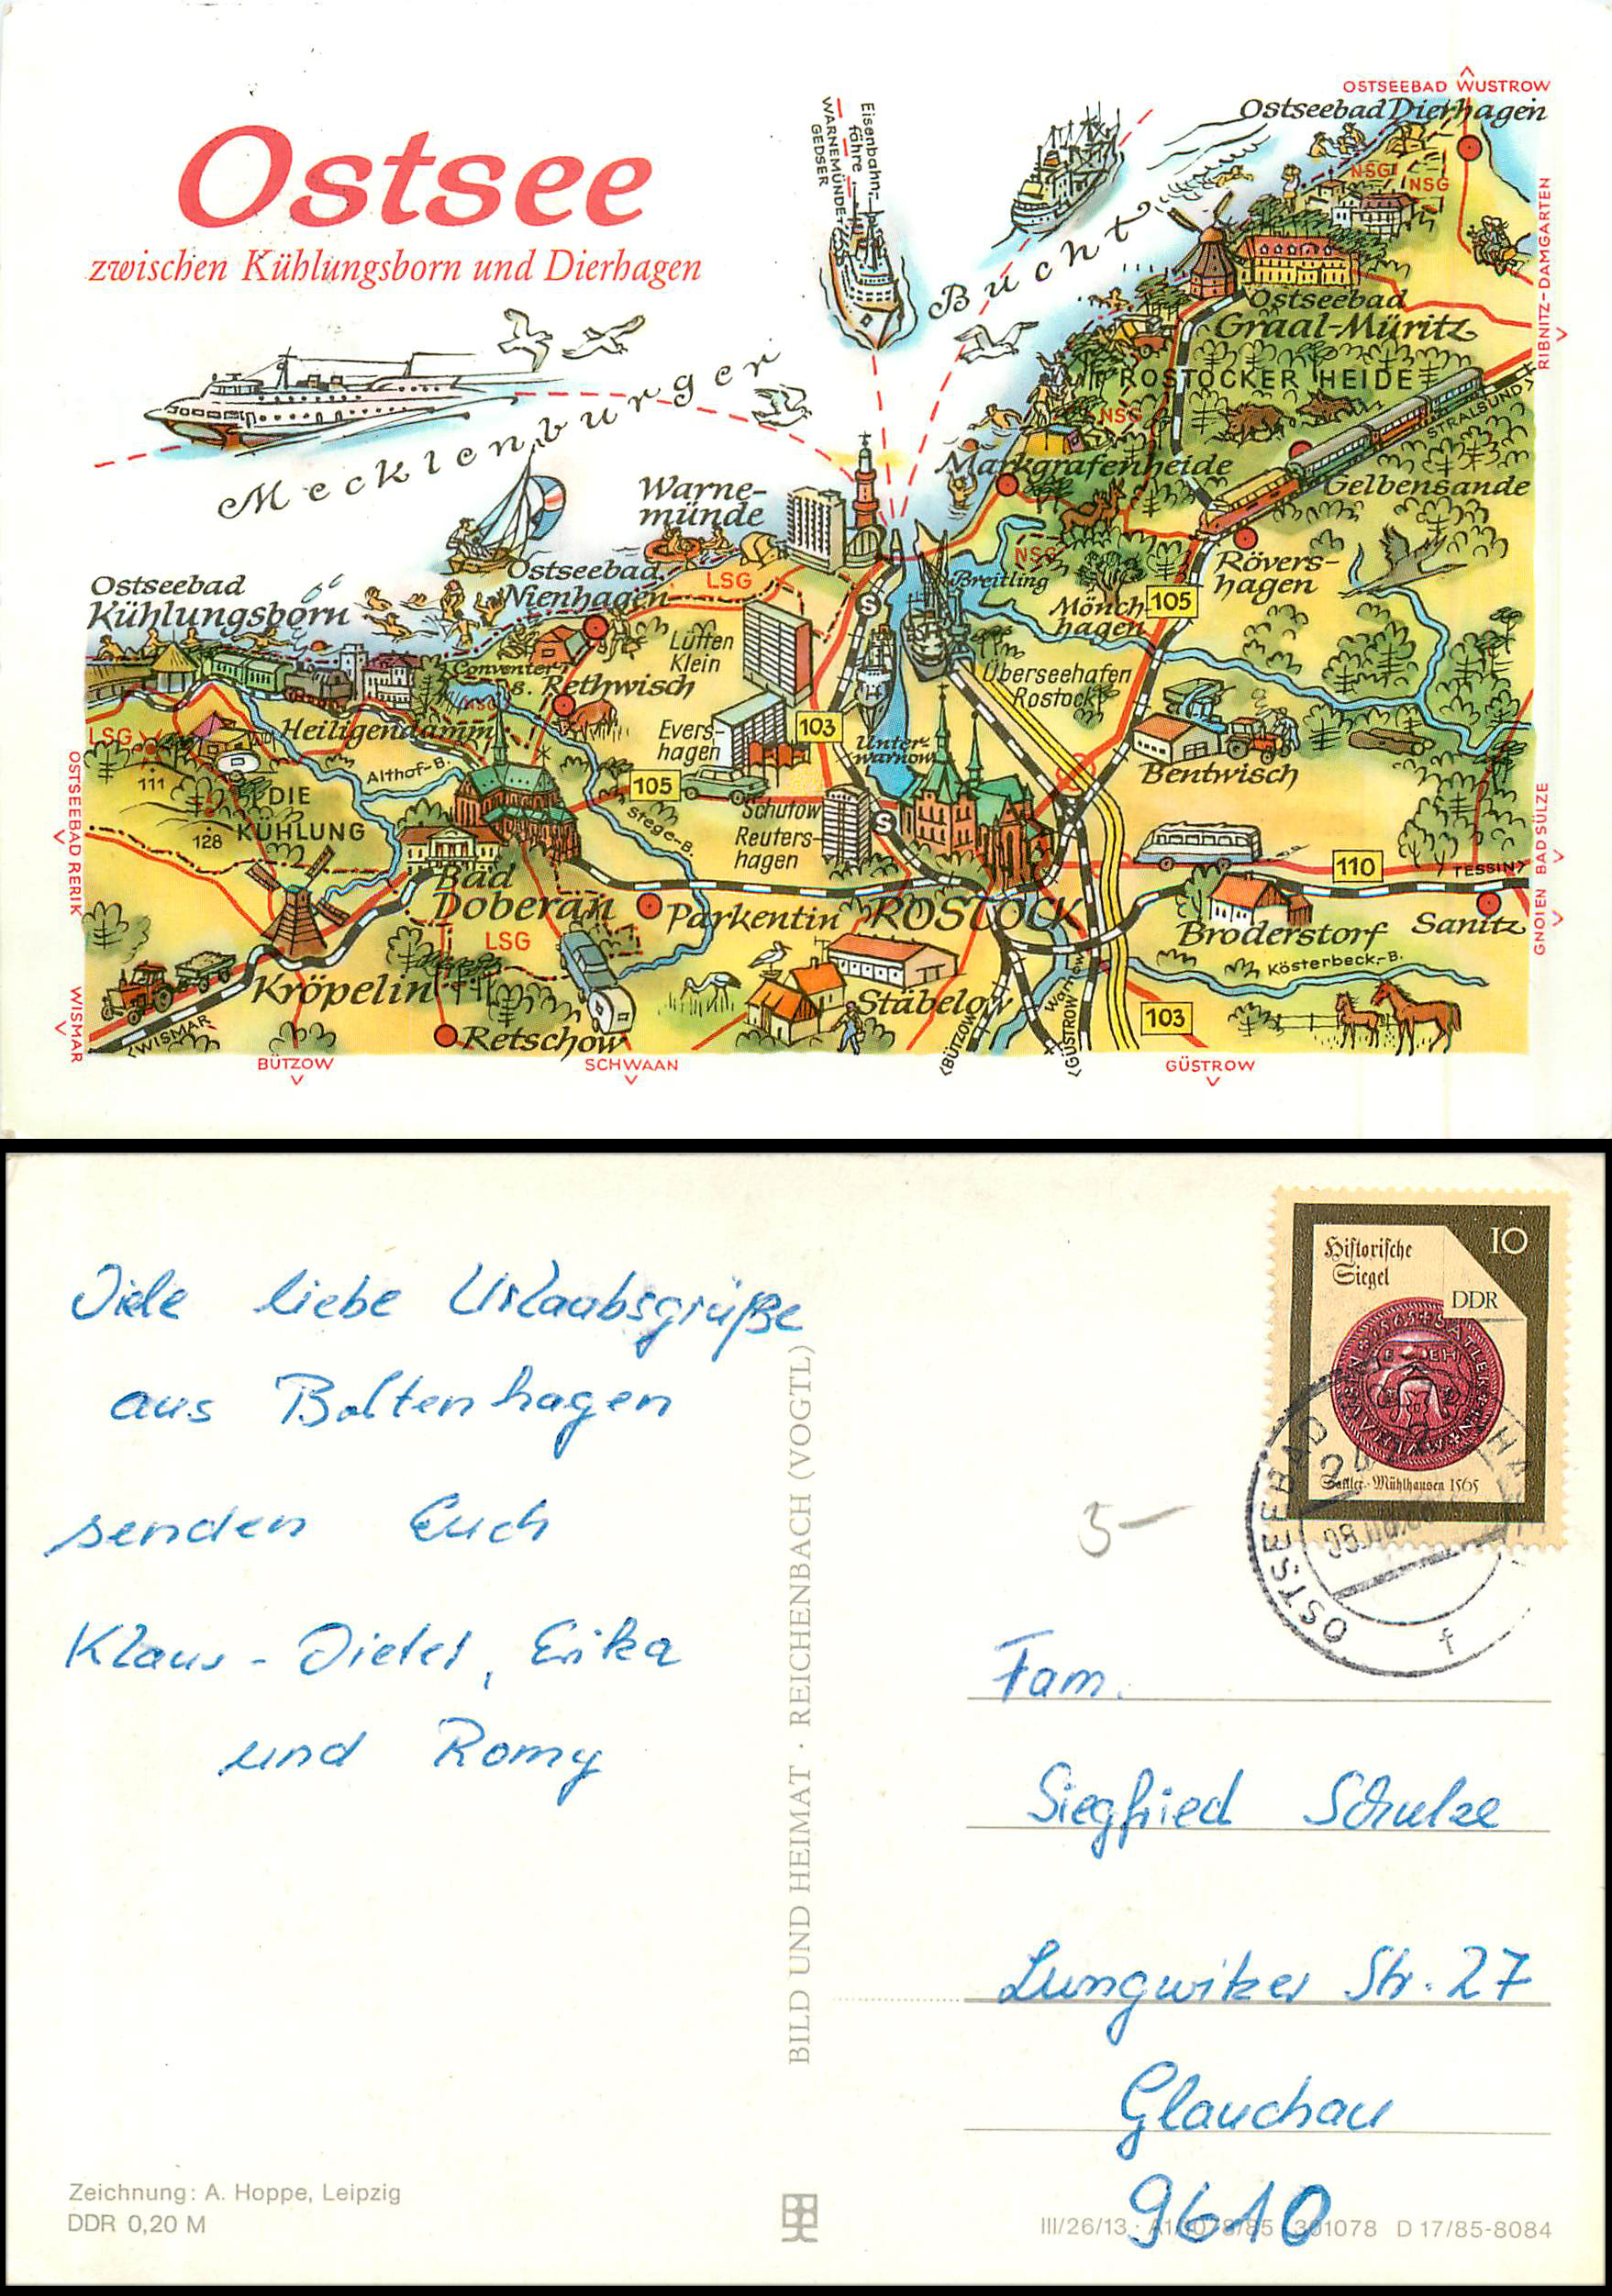 OSTSEEBAD WUSTROW
Ostseebad Dierhagen
Ostsee
zwischen Kühlungsborn und Dierhagen
Eisenbahn-
fähre
WARNEMÜNDE-
GEDSER
Mecklenburger Bucht
NSG
NSG
RIBNITZ-DAMGARTEN
Ostseebad
Graal-Müritz
ROSTOCKER HEIDE
STRALSUND
NSG
Markgrafenheide
Gelbensande
Warne-
münde
NSG
Rövers-
hagen
Breitling
Mönch-
hagen
105
Ostseebad
Nienhagen
LSG
Ostseebad
Kühlungsborn
S
Lütten
Klein
Überseehafen
Rostock
Conventer
S.
Rethwisch
NSG
Heiligendamm
LSG
111
Evers-
hagen
103
Unter-
warnow
Bentwisch
Althof-B.
105
DIE
KÜHLUNG
128
Stege-B.
Schutow
Reuters-
hagen
S
110
TESSIN
OSTSEEBAD RERIK
GNOIEN BAD SÜLZE
Bad
Doberan
Parkentin
ROSTOCK
Broderstorf
Sanitz
LSG
Kösterbeck-B.
Kröpelin
Stäbelow
Warnow
103
WISMAR
WISMAR
Retschow
BÜTZOW
GÜSTROW
BÜTZOW
SCHWAAN
GÜSTROW
Viele liebe Urlaubsgrüße
aus Boltenhagen
senden Euch
Klaus-Dieter, Erika
und Romy
BILD UND HEIMAT · REICHENBACH (VOGTL)
Zeichnung: A. Hoppe, Leipzig
DDR 0,20 M
10
Historische
Siegel
DDR
Sattler-Mühlhausen 1565
OSTSEEBAD
f
5-
Fam.
Siegfried Schulze
Lungwitzer Str. 27
Glauchau
9610
III/26/13 · A1/1079/85 301078 D 17/85-8084